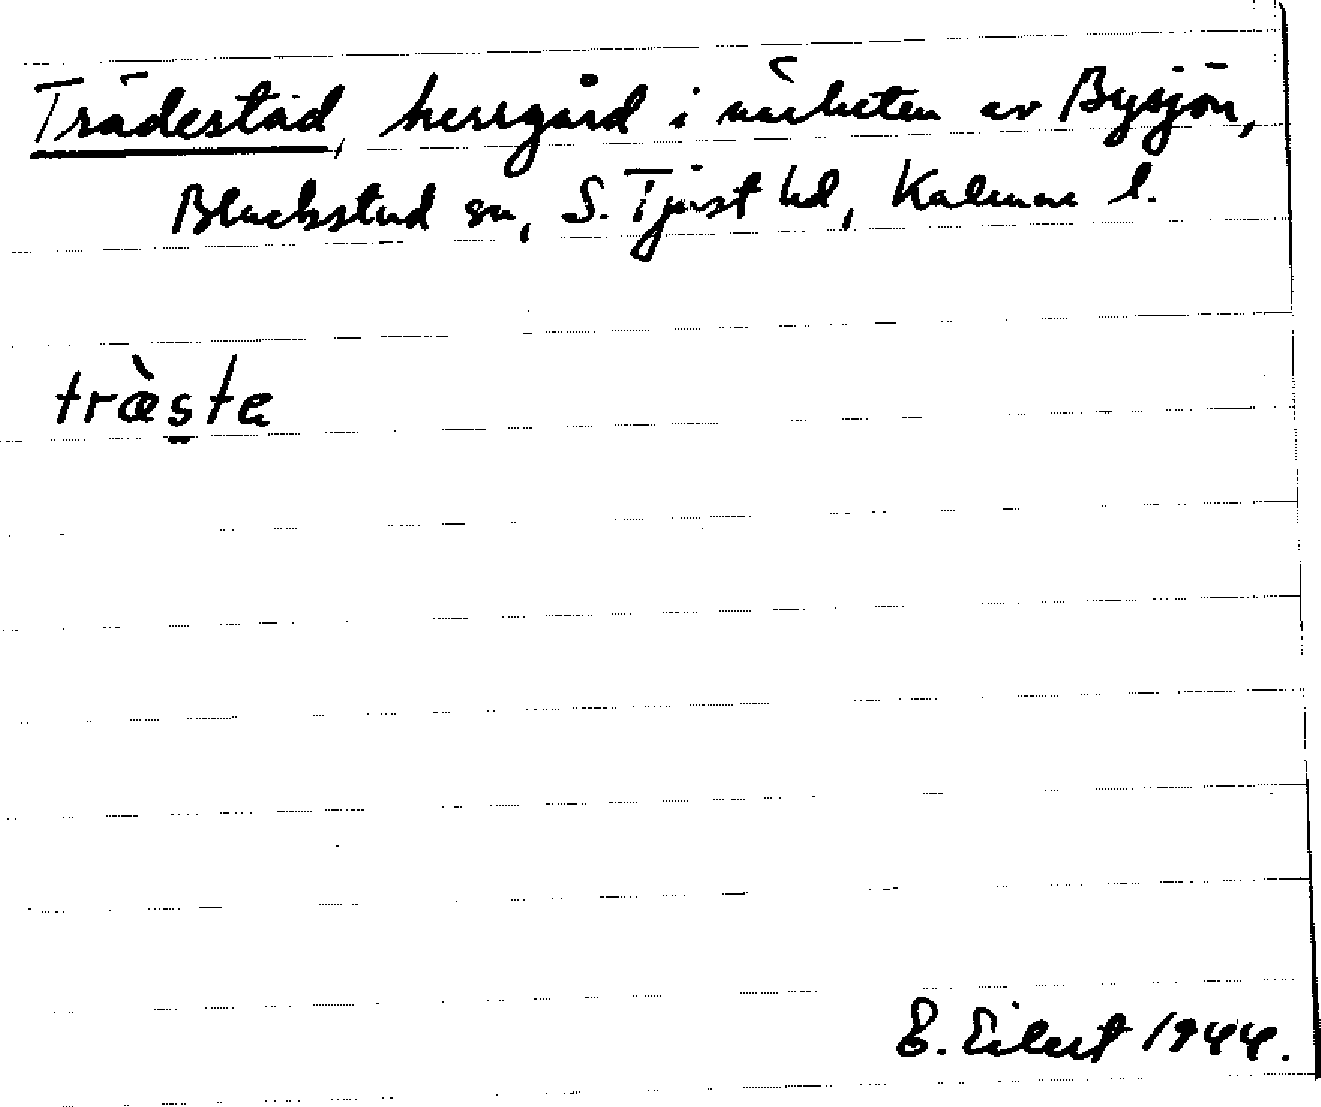 Trädestad, herrgård i närheten av Bysjön,
Blackstad sn, S. Tjust hd, Kalmar l.
træ̀s̱ta
E. Eilert 1944.